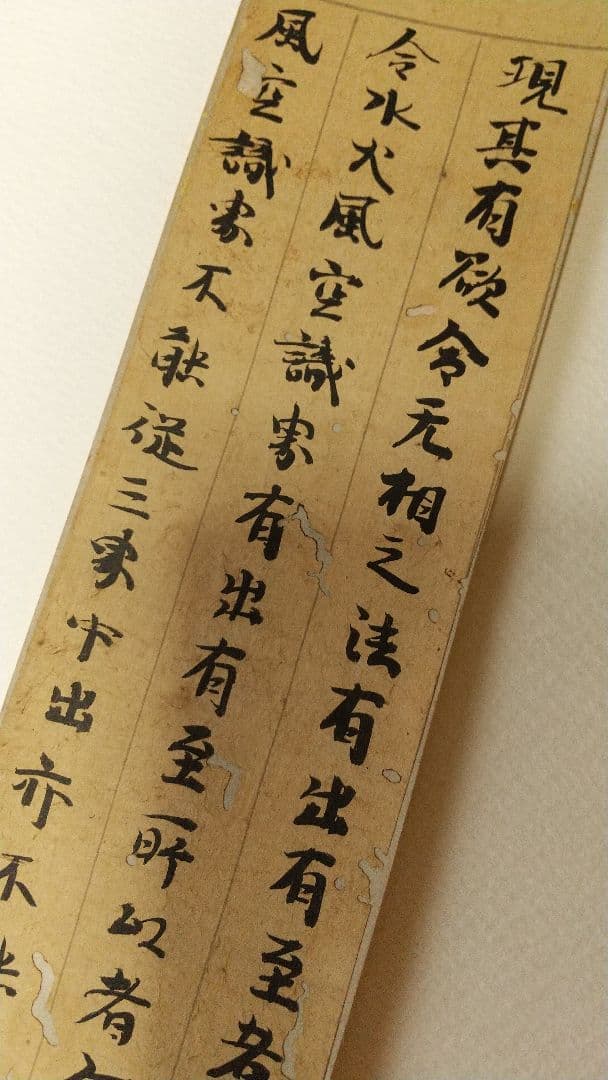 現其有欲令无相之法有出有至者
令水火風空識界有出有至所以者
風空識界不能從三界中出亦不